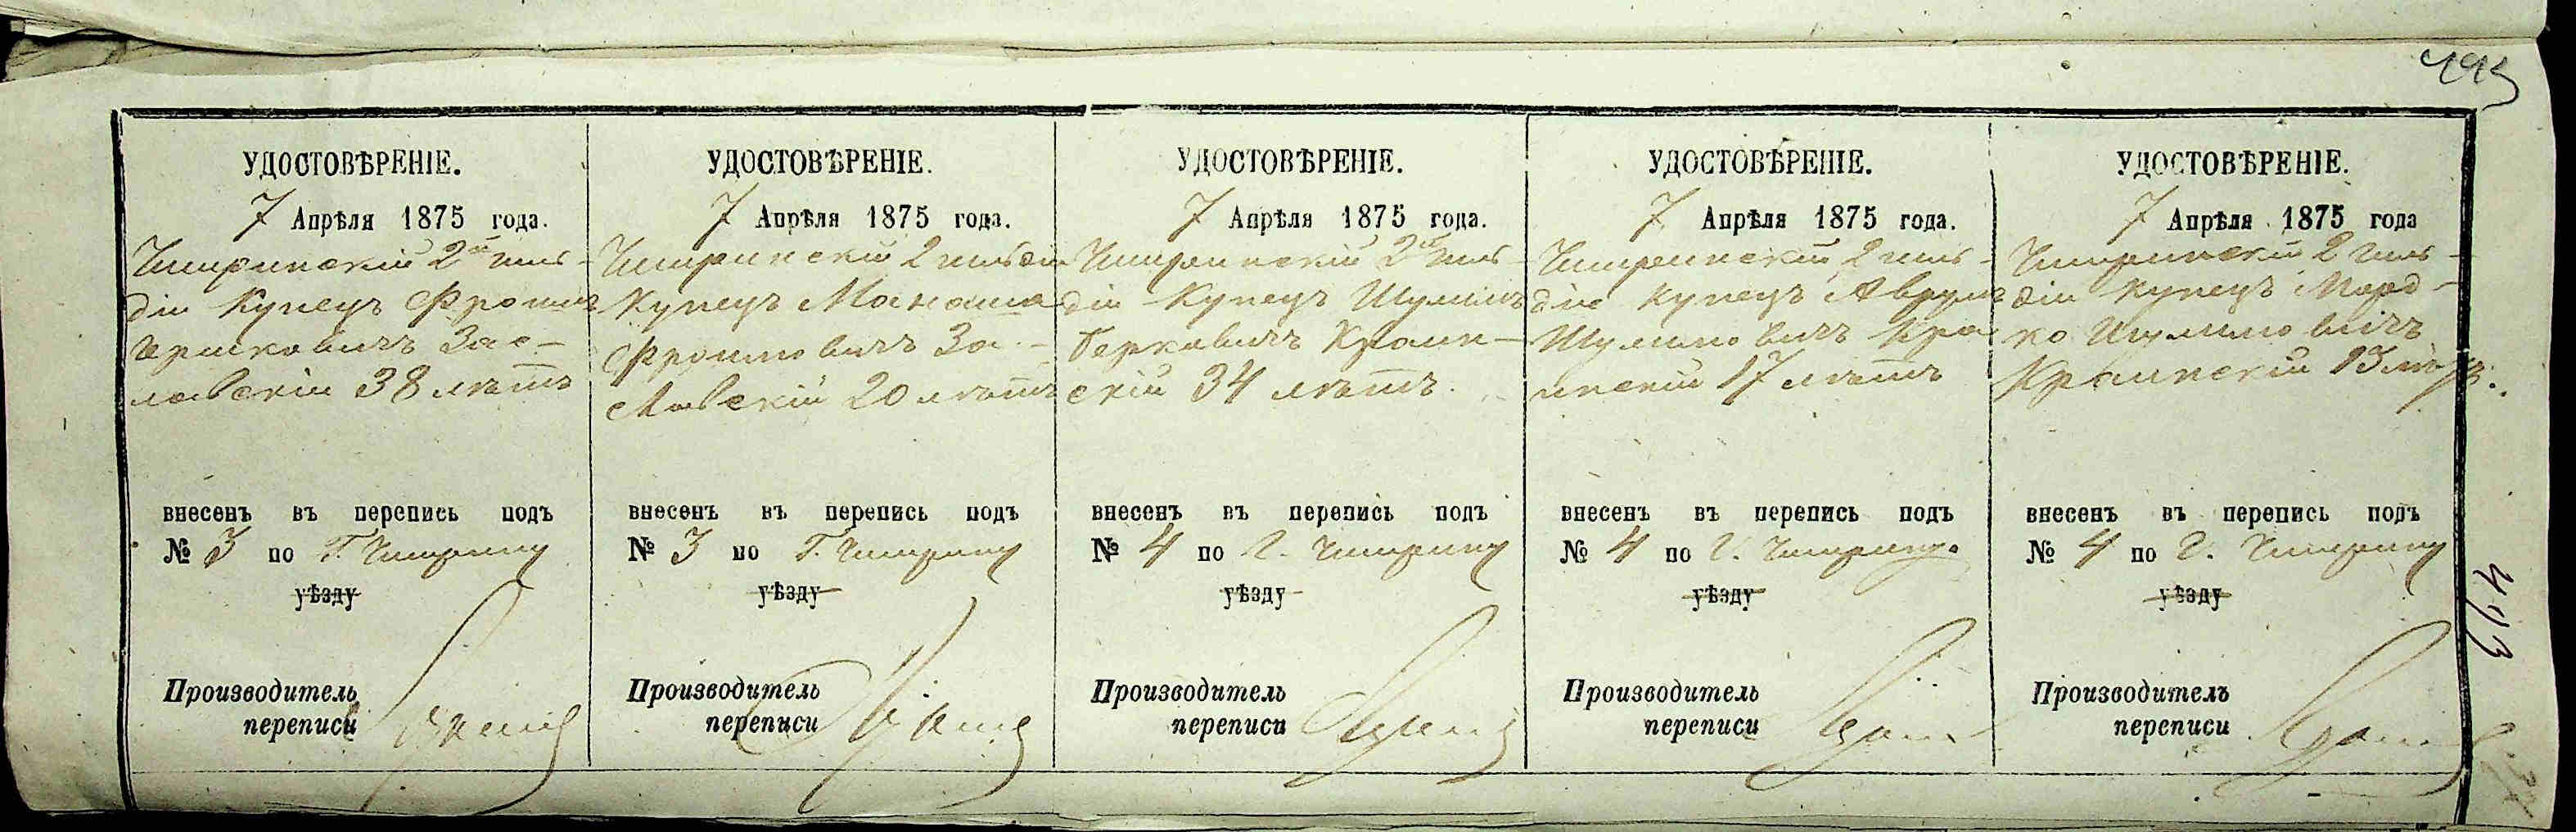 493
УДОСТОВѢРЕНІЕ.
7 Апрѣля 1875 года.
Чигиринскій 2й гиль-
діи Купецъ Фроимъ
Ершковичъ Зас-
лавскій 38 лѣтъ
внесенъ въ перепись подъ
№ 3 по Г. Чигирину
уѣзду
Производитель
переписи
УДОСТОВѢРЕНІЕ.
7 Апрѣля 1875 года.
Чигиринскій 2 гильдіи
Купецъ Манаша
Фроимовичъ За-
славскій 20 лѣтъ
внесенъ въ перепись подъ
№ 3 по Г. Чигирину
уѣзду
Производитель
переписи
УДОСТОВѢРЕНІЕ.
7 Апрѣля 1875 года.
Чигиринскій 2й гиль-
діи Купецъ Шулимъ
Берковичъ Краин-
скій 34 лѣтъ.
внесенъ въ перепись подъ
№ 4 по Г. Чигирину
уѣзду
Производитель
переписи
УДОСТОВѢРЕНІЕ.
7 Апрѣля 1875 года.
Чигиринскій 2 гиль-
діи Купецъ Аврумъ
Шулимовичъ Кра-
инскій 17 лѣтъ
внесенъ въ перепись подъ
№ 4 по Г. Чигирину
уѣзду
Производитель
переписи
УДОСТОВѢРЕНІЕ.
7 Апрѣля 1875 года
Чигиринскій 2 гиль-
діи Купецъ Морд-
ко Шулимовичъ
Краинскій 13 лѣтъ.
внесенъ въ перепись подъ
№ 4 по Г. Чигирину
уѣзду
Производитель
переписи
493